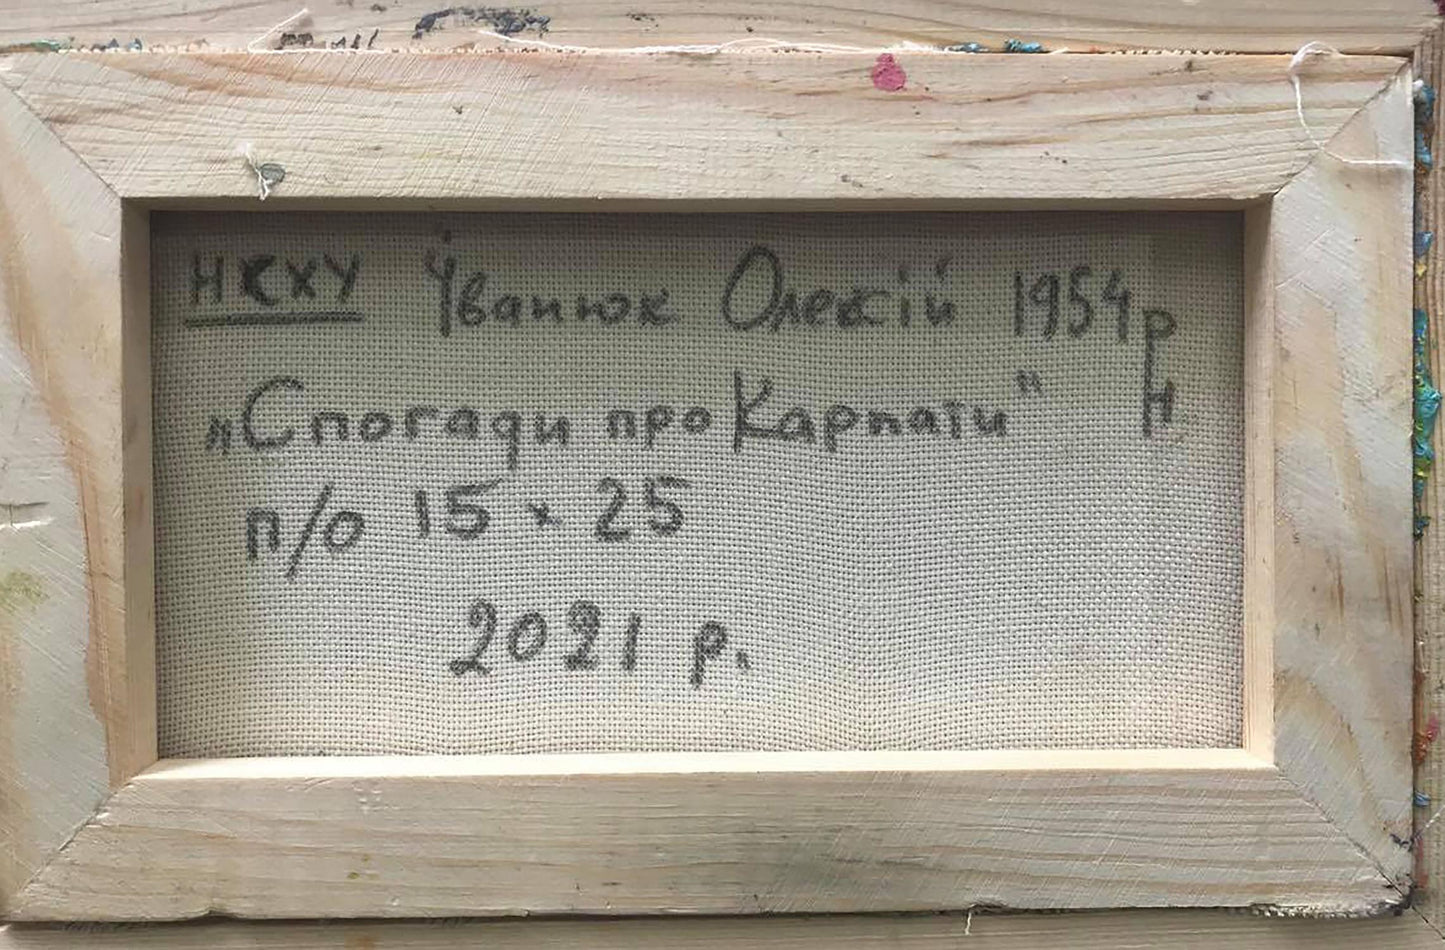 НСХУ Іванюк Олексій 1954 р
н
„Спогади про Карпати"
п/о 15 × 25
2021 р.